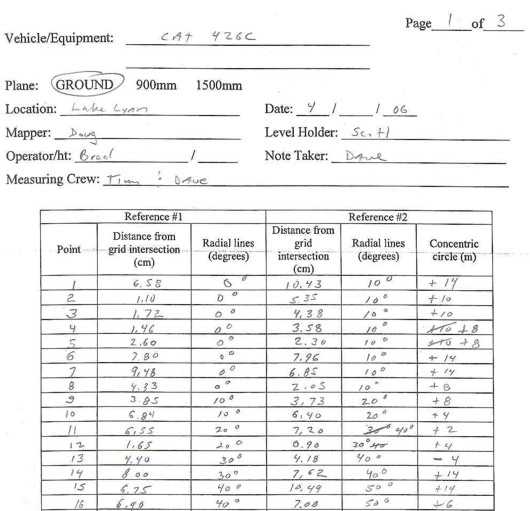 Page 1 of 3
Vehicle/Equipment: CAT 426C
Plane: GROUND 900mm 1500mm
Location: Lake Lynn Date: 4 / / 06
Mapper: Doug Level Holder: Scott
Operator/ht: Brad / Note Taker: Dave
Measuring Crew: Tim : DAVE
Reference #1 Reference #2
Point Distance from grid intersection (cm) Radial lines (degrees) Distance from grid intersection (cm) Radial lines (degrees) Concentric circle (m)
1 6.58 0° 10.43 10° + 14
2 1.10 0° 5.35 10° + 10
3 1.72 0° 4.38 10° + 10
4 1.46 0° 3.58 10° +10 +8
5 2.60 0° 2.30 10° +10 +8
6 7.80 0° 7.96 10° + 14
7 9.48 0° 6.85 10° + 14
8 4.33 0° 2.05 10° + 8
9 3.85 10° 3.73 20° + 8
10 6.84 10° 6.40 20° + 4
11 6.55 20° 7.20 30° 40° + 2
12 1.65 20° 0.90 30° 40 + 4
13 4.40 30° 4.18 40° - 4
14 8.00 30° 7.62 40° + 14
15 6.75 40° 10.49 50° + 14
16 6.90 40° 7.08 50° + 6